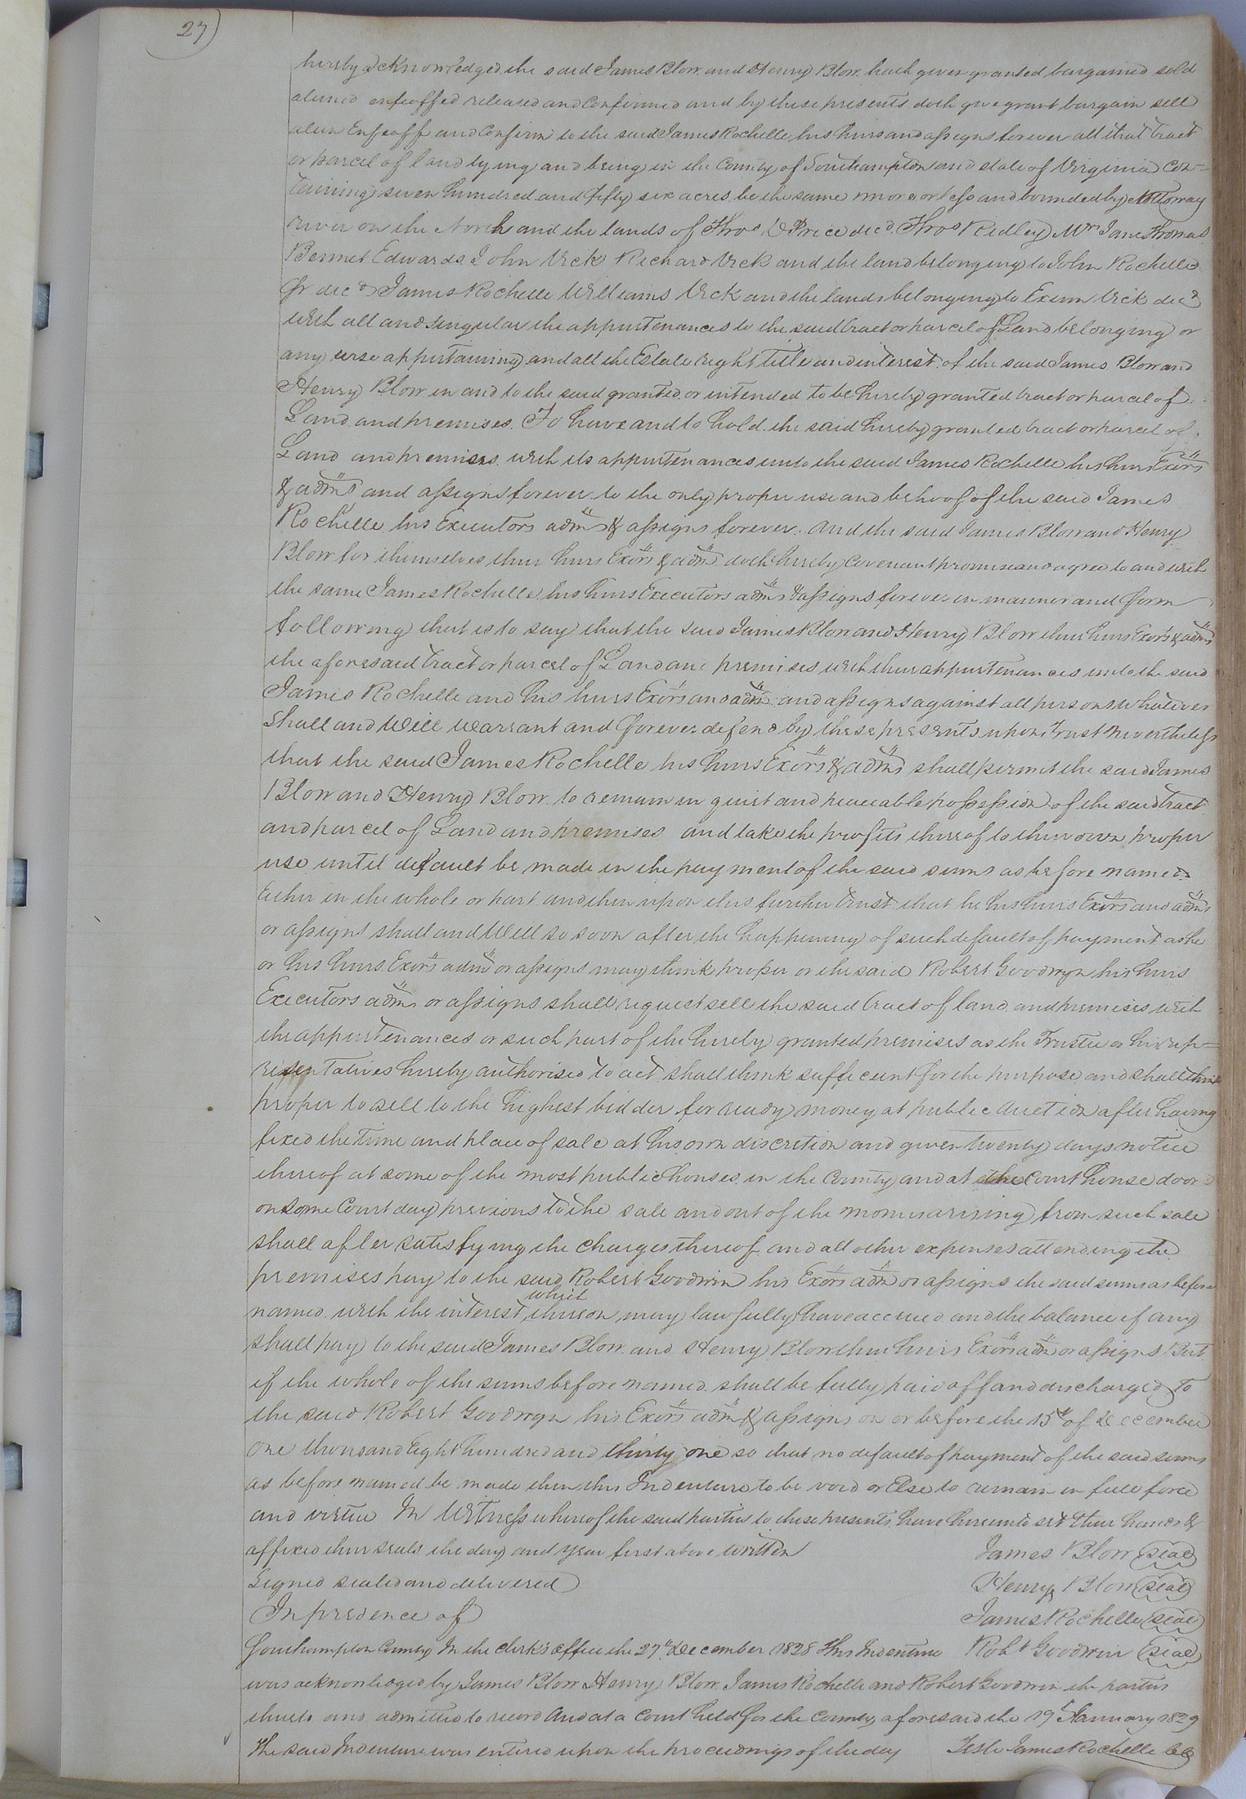 27)
hereby acknowledged the said James Blow and Henry Blow hath given granted bargained sold
aliened enfeoffed released and Confirmed and by these presents doth give grant bargain sell
alien Enfeoff and Confirm to the said James Rochelle his heirs and assigns forever all that tract
or parcel of land lying and being in the County of Southampton and state of Virginia Con=
taining seven hundred and fifty six acres be the same more or less and bounded by Nottoway
river on the North and the lands of Thos D Price decd. Thos Ridley, Mrs Jane Thomas
Bennet Edwards John Vick Richard Vick and the land belonging to John Rochelle
Jr decd James Rochelle Williams Vick and the lands belonging to Exum Vick decd
with all and singular the appurtenances to the said tract or parcel of Land belonging or
any wise appertaining and all the Estate right title and interest of the said James Blow and
Henry Blow in and to the said granted or intended to be hereby granted tract or parcel of
Land and premises. To have and to hold the said hereby granted tract or parcel of
Land and premises with its appurtenances unto the said James Rochelle his heirs Exors
& adms and assigns forever to the only proper use and behoof of the said James
Rochelle his Executors adms & assigns forever. And the said James Blow and Henry
Blow for themselves their heirs Exors & adms doth hereby Covenant promise and agree to and with
the same James Rochelle his heirs Executors adms & assigns forever in manner and form
following that is to say that the said James Blow and Henry Blow their heirs Exors & adms
the aforesaid tract or parcel of Land and premises with their appurtenances unto the said
James Rochelle and his heirs Exors and adms and assigns against all persons whatever
Shall and Will warrant and forever defend by these presents upon Trust nevertheless
that the said James Rochelle his heirs Exors & adms shall permit the said James
Blow and Henry Blow to remain in quiet and peaceable possession of the said tract
and parcel of Land and premises and take the profits thereof to their own proper
use until default be made in the payment of the said sums as before named
Either in the whole or part and then upon this further trust that he his heirs Exors and adms
or assigns shall and Will so soon after the happening of such default of payment as he
or his heirs Exors adms or assigns may think proper or the said Robert Goodwyn his heirs
Executors adms or assigns shall request sell the said tract of land and premises with
the appurtenances or such part of the hereby granted premises as the Trustee or his rep=
resentatives hereby authorised to act shall think sufficient for the purpose and shall think
proper to sell to the highest bidder for ready money at public Auction after having
fixed the time and place of sale at his own discretion and given twenty days notice
thereof at some of the most public houses in the County and at the Court house door
on some Court day previous to the sale and out of the monies arising from such sale
shall after satisfying the charges thereof and all other expenses attending the
premises pay to the said Robert Goodwin his Exors adms or assigns the said sums as before
named with the interest which thereon may lawfully have accrued and the balance if any
shall pay to the said James Blow and Henry Blow their heirs Exors adms or assigns But
if the whole of the sums before named shall be fully paid off and discharged to
the said Robert Goodwyn his Exors adms & assigns on or before the 15th of December
one thousand Eight hundred and thirty one so that no default of payment of the said sums
as before named be made then this Indenture to be void or Else to remain in full force
and virtue In Witness whereof the said parties to these presents have hereunto set their hands &
affixed their seals the day and year first above written James Blow (seal)
Signed sealed and delivered Henry Blow (seal)
In presence of James Rochelle (seal)
Southampton County In the Clerk's Office the 27th December 1828 This Indenture Robt Goodwin (seal)
was acknowledged by James Blow Henry Blow James Rochelle and Robert Goodwin the parties
thereto and admitted to record And at a Court held for the County aforesaid the 19th January 1829
The said Indenture was entered upon the proceedings of the day Teste James Rochelle CC